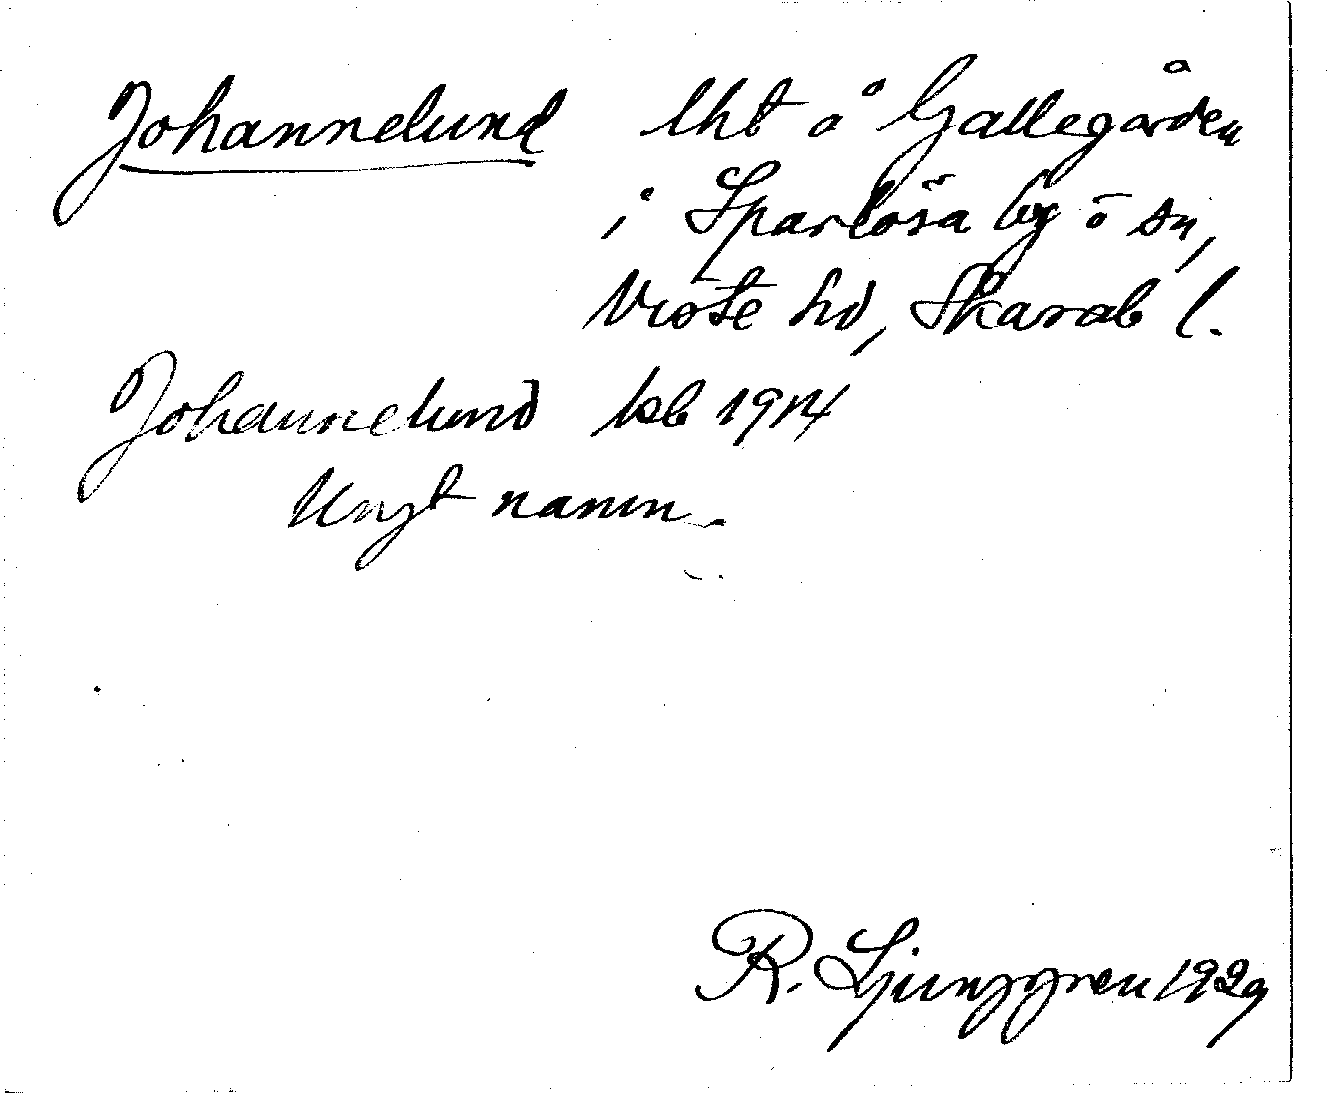 Johannelund lht å Gallegården
i Sparlösa by o sn,
Viste hd, Skarab l.
Johannelund kb 1914
Ungt namn.
R. Ljunggren 1929